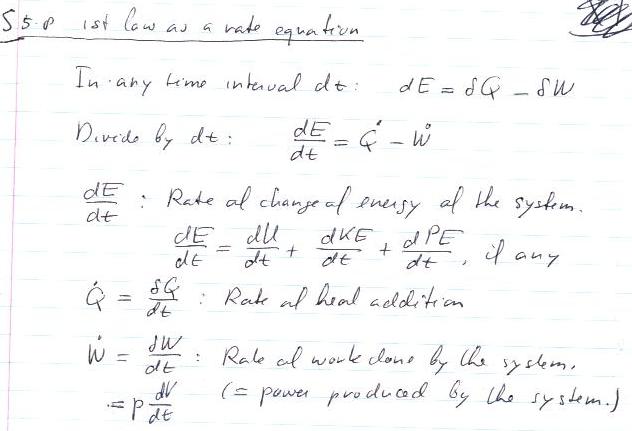 §5.8 1st law as a rate equation
In any time interval dt: dE = δQ - δW
Divide by dt: dE/dt = Q̇ - Ẇ
dE/dt : Rate of change of energy of the system.
dE/dt = dU/dt + dKE/dt + dPE/dt, if any
Q̇ = δQ/dt : Rate of heat addition
Ẇ = δW/dt : Rate of work done by the system.
= p dV/dt (= power produced by the system.)